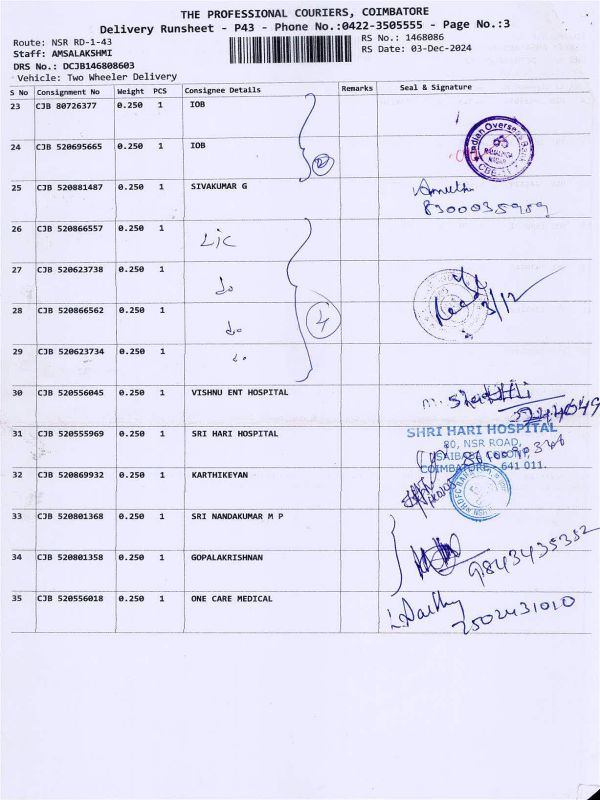 THE PROFESSIONAL COURIERS, COIMBATORE
Delivery Runsheet - P43 - Phone No.:0422-3505555 - Page No.:3
Route: NSR RD-1-43
RS No.: 1468086
Staff: AMSALAKSHMI
RS Date: 03-Dec-2024
DRS No.: DCJB146808603
Vehicle: Two Wheeler Delivery
S No Consignment No Weight PCS Consignee Details Remarks Seal & Signature
23 CJB 80726377 0.250 1 IOB
24 CJB 520695665 0.250 1 IOB
2
Indian Overseas Bank
25 CJB 520881487 0.250 1 SIVAKUMAR G
8300035989
26 CJB 520866557 0.250 1 LIC
27 CJB 520623738 0.250 1 do
28 CJB 520866562 0.250 1 do
4
3/12
29 CJB 520623734 0.250 1
30 CJB 520556045 0.250 1 VISHNU ENT HOSPITAL
31 CJB 520555969 0.250 1 SRI HARI HOSPITAL
SHRI HARI HOSPITAL
80, NSR ROAD,
SAIBABA COLONY,
COIMBATORE - 641 011.
32 CJB 520869932 0.250 1 KARTHIKEYAN
33 CJB 520801368 0.250 1 SRI NANDAKUMAR M P
34 CJB 520801358 0.250 1 GOPALAKRISHNAN
9843435352
35 CJB 520556018 0.250 1 ONE CARE MEDICAL
2502431010